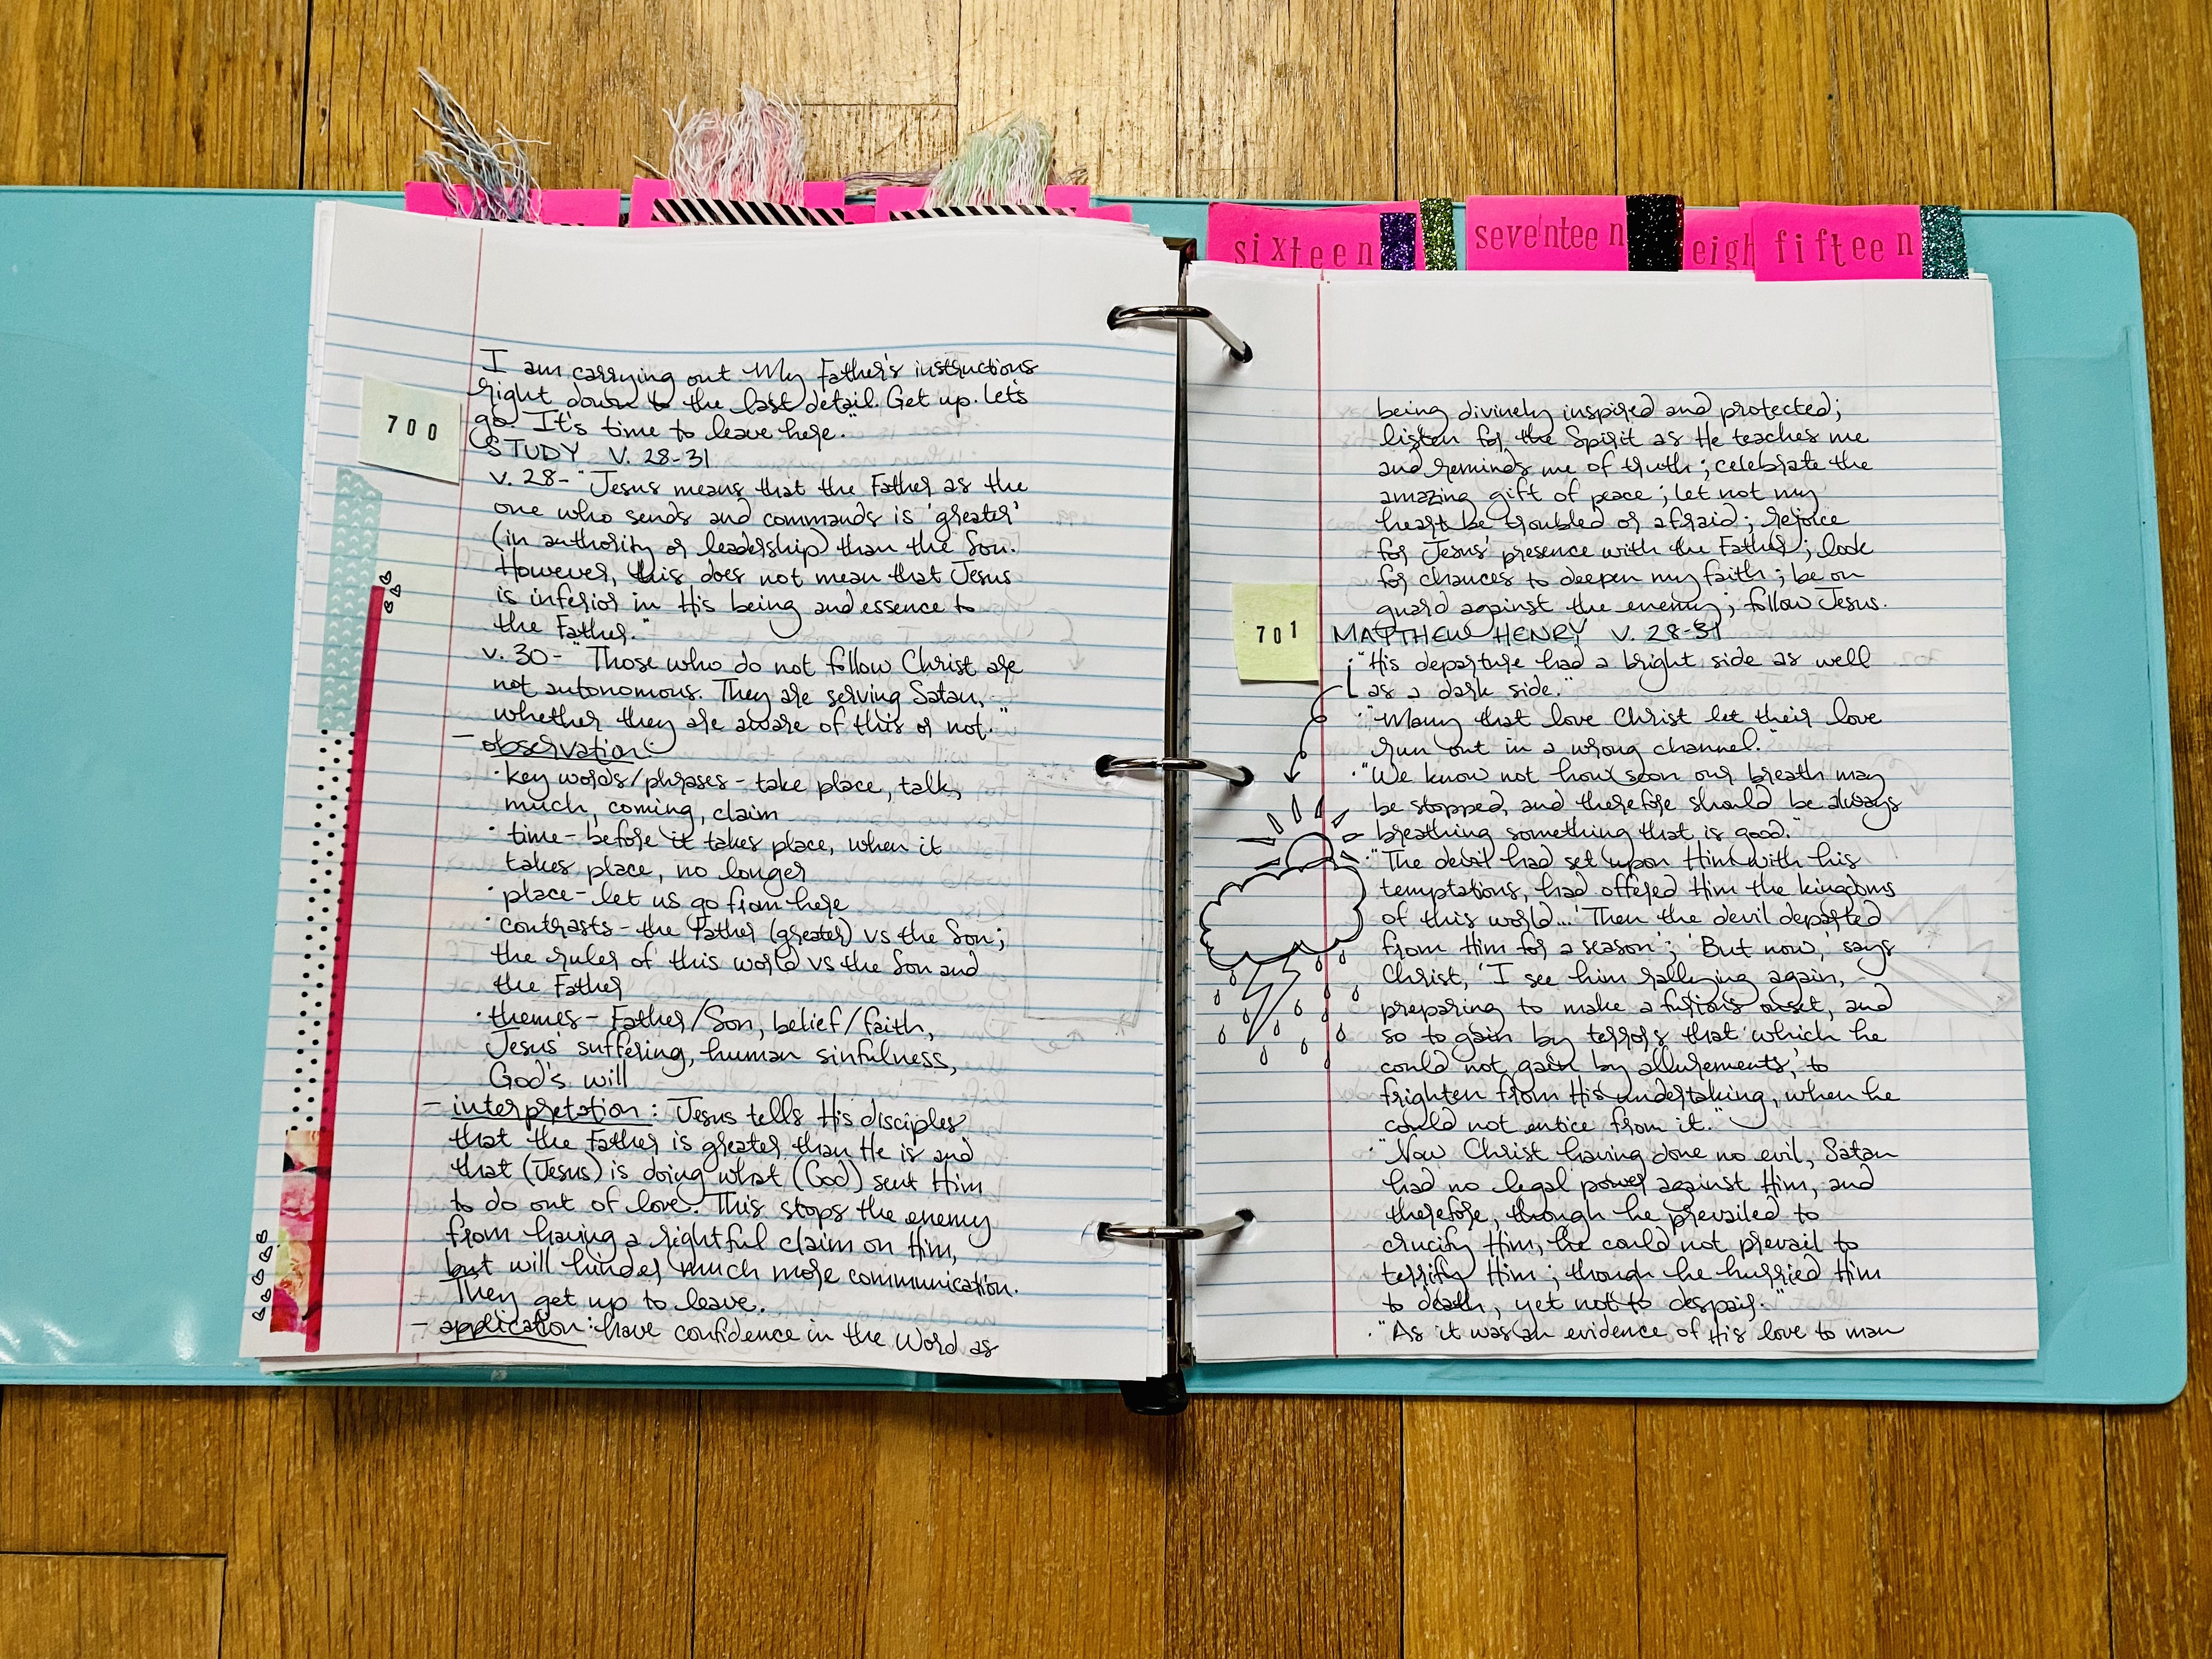 sixteen
seventeen
eigh
fifteen
I am carrying out My Father's instructions
right down to the last detail. Get up. Let's
go. It's time to leave here."
700
STUDY V. 28-31
v. 28- "Jesus means that the Father as the
one who sends and commands is 'greater'
(in authority or leadership) than the Son.
However, this does not mean that Jesus
is inferior in His being and essence to
the Father."
v. 30- "Those who do not follow Christ are
not autonomous. They are serving Satan,
whether they are aware of this or not."
- observation:
· key words/phrases - take place, talk,
much, coming, claim
· time - before it takes place, when it
takes place, no longer
· place - let us go from here
· contrasts - the Father (greater) vs the Son;
the ruler of this world vs the Son and
the Father
· themes - Father/Son, belief/faith,
Jesus' suffering, human sinfulness,
God's will
- interpretation: Jesus tells His disciples
that the Father is greater than He is and
that (Jesus) is doing what (God) sent Him
to do out of love. This stops the enemy
from having a rightful claim on Him,
but will hinder much more communication.
They get up to leave.
- application: have confidence in the Word as
being divinely inspired and protected;
listen for the Spirit as He teaches me
and reminds me of truth; celebrate the
amazing gift of peace; let not my
heart be troubled or afraid; rejoice
for Jesus' presence with the Father; look
for chances to deepen my faith; be on
guard against the enemy; follow Jesus.
701
MATTHEW HENRY V. 28-31
· "His departure had a bright side as well
as a dark side."
· "Many that love Christ let their love
run out in a wrong channel."
· "We know not how soon our breath may
be stopped, and therefore should be always
breathing something that is good."
· "The devil had set upon Him with his
temptations, had offered Him the kingdoms
of this world... 'Then the devil departed
from Him for a season'; 'But now,' says
Christ, 'I see him rallying again,
preparing to make a furious onset, and
so to gain by terrors that which he
could not gain by allurements,' to
frighten from His undertaking, when he
could not entice from it."
· "Now Christ having done no evil, Satan
had no legal power against Him, and
therefore, though he prevailed to
crucify Him, he could not prevail to
terrify Him; though he hurried Him
to death, yet not to despair."
· "As it was an evidence of His love to man